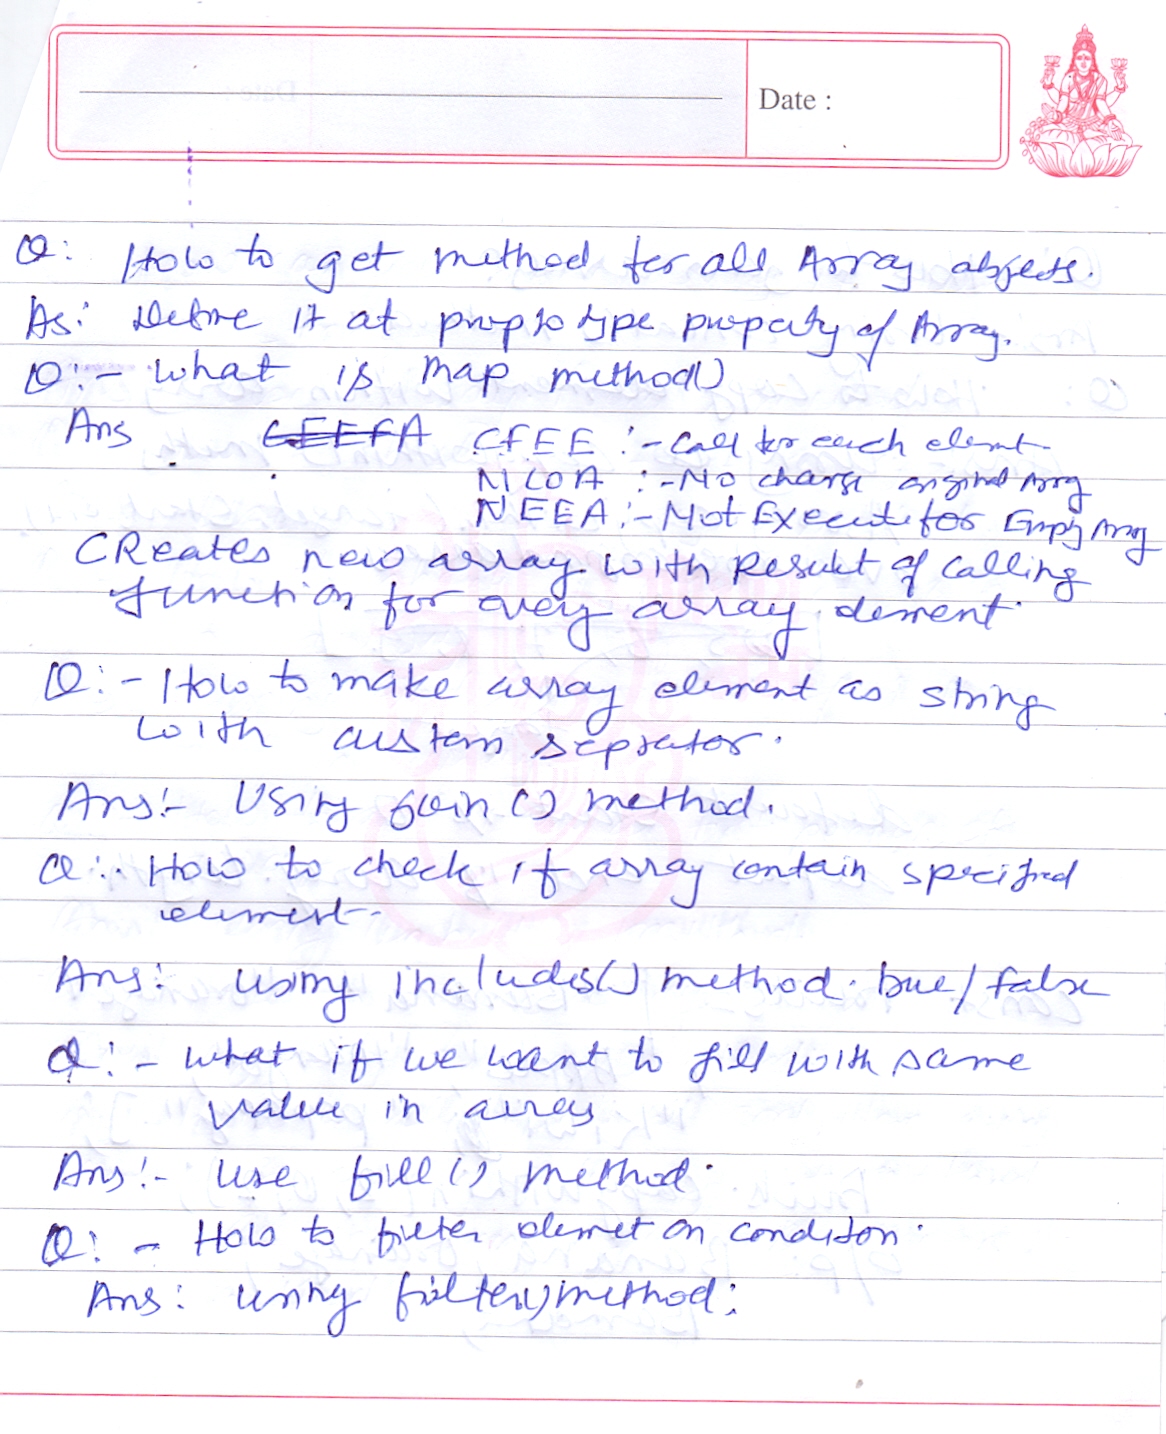 Date :
Q: How to get method for all Array objects.
As: Define it at prototype property of Array.
Q:- What is map method()
Ans CEEFA CFEE :- Call for each elemt
NCOA :- No change original Arry
NEEA :- Not Execute for Empty Array
CReates new array with Result of calling
function for every array element.
Q:- How to make array element as string
with custom seprator.
Ans:- Using join() method.
Q:- How to check if array contain specified
element-
Ans: using includes() method. true/false
Q:- what if we want to fill with same
value in array
Ans:- use fill() method.
Q:- How to filter elemet on conditon.
Ans: using filter() method: